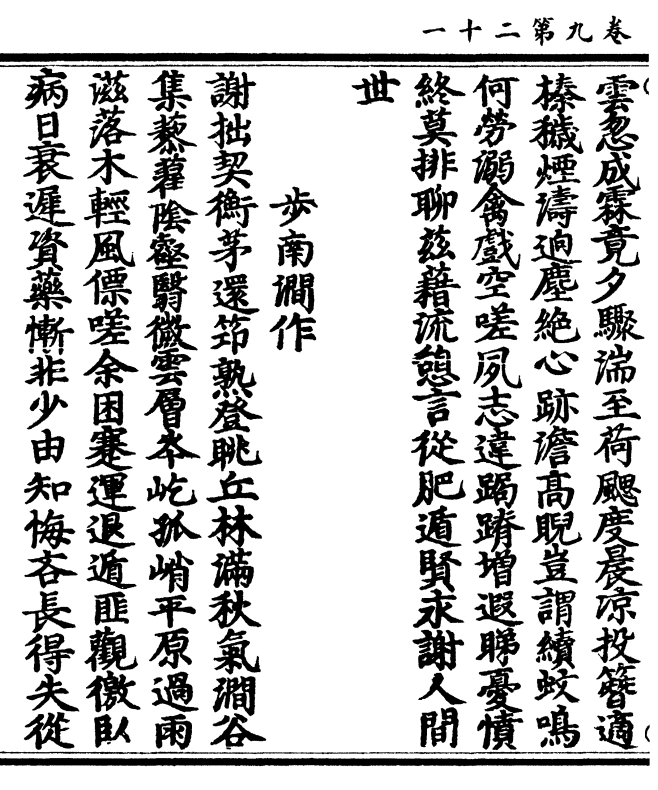 卷九第二十一
雲忽成霖竟夕驟湍至荷颸度晨涼投簪適
榛穢煙濤迥塵絕心跡澹高睨豈謂續蚊鳴
何勞溺禽戲空嗟夙志違躅躋增遐睇憂憤
終莫排聊茲藉流憩言從肥遁賢永謝人間
世
步南澗作
謝拙契衡茅還筇熟登眺丘林滿秋氣澗谷
集藜藿陰壑翳微雲層岑屹孤峭平原過雨
滋落木輕風僄嗟余困蹇運退遁匪觀徼臥
病日衰遲資藥慚非少由知悔吝長得失從